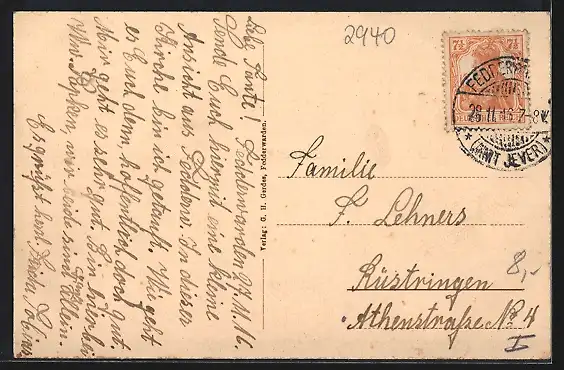 2940
7½ 7½
FEDDERW
26.11.16.7-8V.
* (AMT JEVER) *
Liebe Tante!
Fedderwarden 27.11.16.
Sende Euch hiermit eine kleine
Ansicht aus Fedderw. In dieser
Kirche bin ich getauft. Wie geht
es Euch denn, hoffentlich doch gut.
Mir geht es sehr gut. Bin hier bei
Ww. Popken, wir beide sind allein.
Es grüßt herzl.
Verlag: G. H. Gerdes, Fedderwarden.
Familie
F. Lehners
Rüstringen
Athenstraße No 4
8,-
I